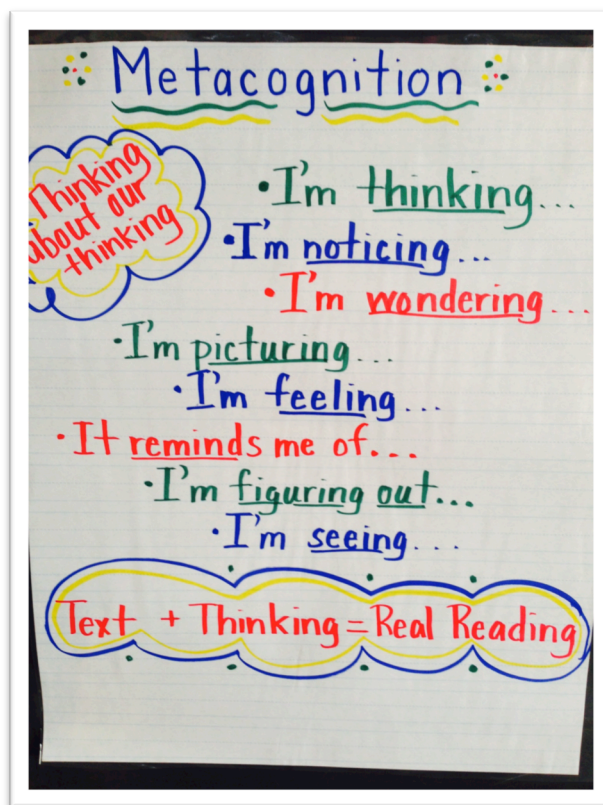 Metacognition
Thinking
about our
thinking
•I'm thinking...
•I'm noticing...
•I'm wondering...
•I'm picturing...
•I'm feeling...
•It reminds me of...
•I'm figuring out...
•I'm seeing...
Text + Thinking = Real Reading